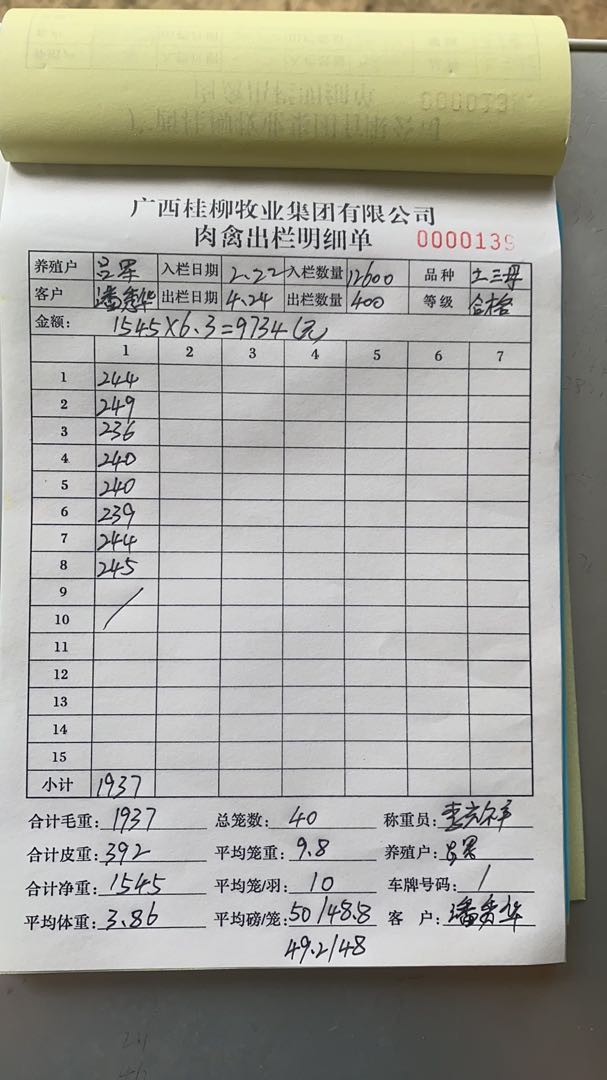 广西桂柳牧业集团有限公司
肉禽出栏明细单 0000139
养殖户 入栏日期 2.22 入栏数量 12600 品种 土三母
客户 潘秀华 出栏日期 4.24 出栏数量 400 等级 合格
金额: 1545×6.3=9734(元)
1 2 3 4 5 6 7
1 244
2 249
3 236
4 240
5 240
6 239
7 244
8 245
9
10
11
12
13
14
15
小计 1937
合计毛重: 1937 总笼数: 40 称重员:
合计皮重: 392 平均笼重: 9.8 养殖户:
合计净重: 1545 平均笼/羽: 10 车牌号码: /
平均体重: 3.86 平均磅/笼: 50/48.8 客 户: 潘秀华
49.2/48